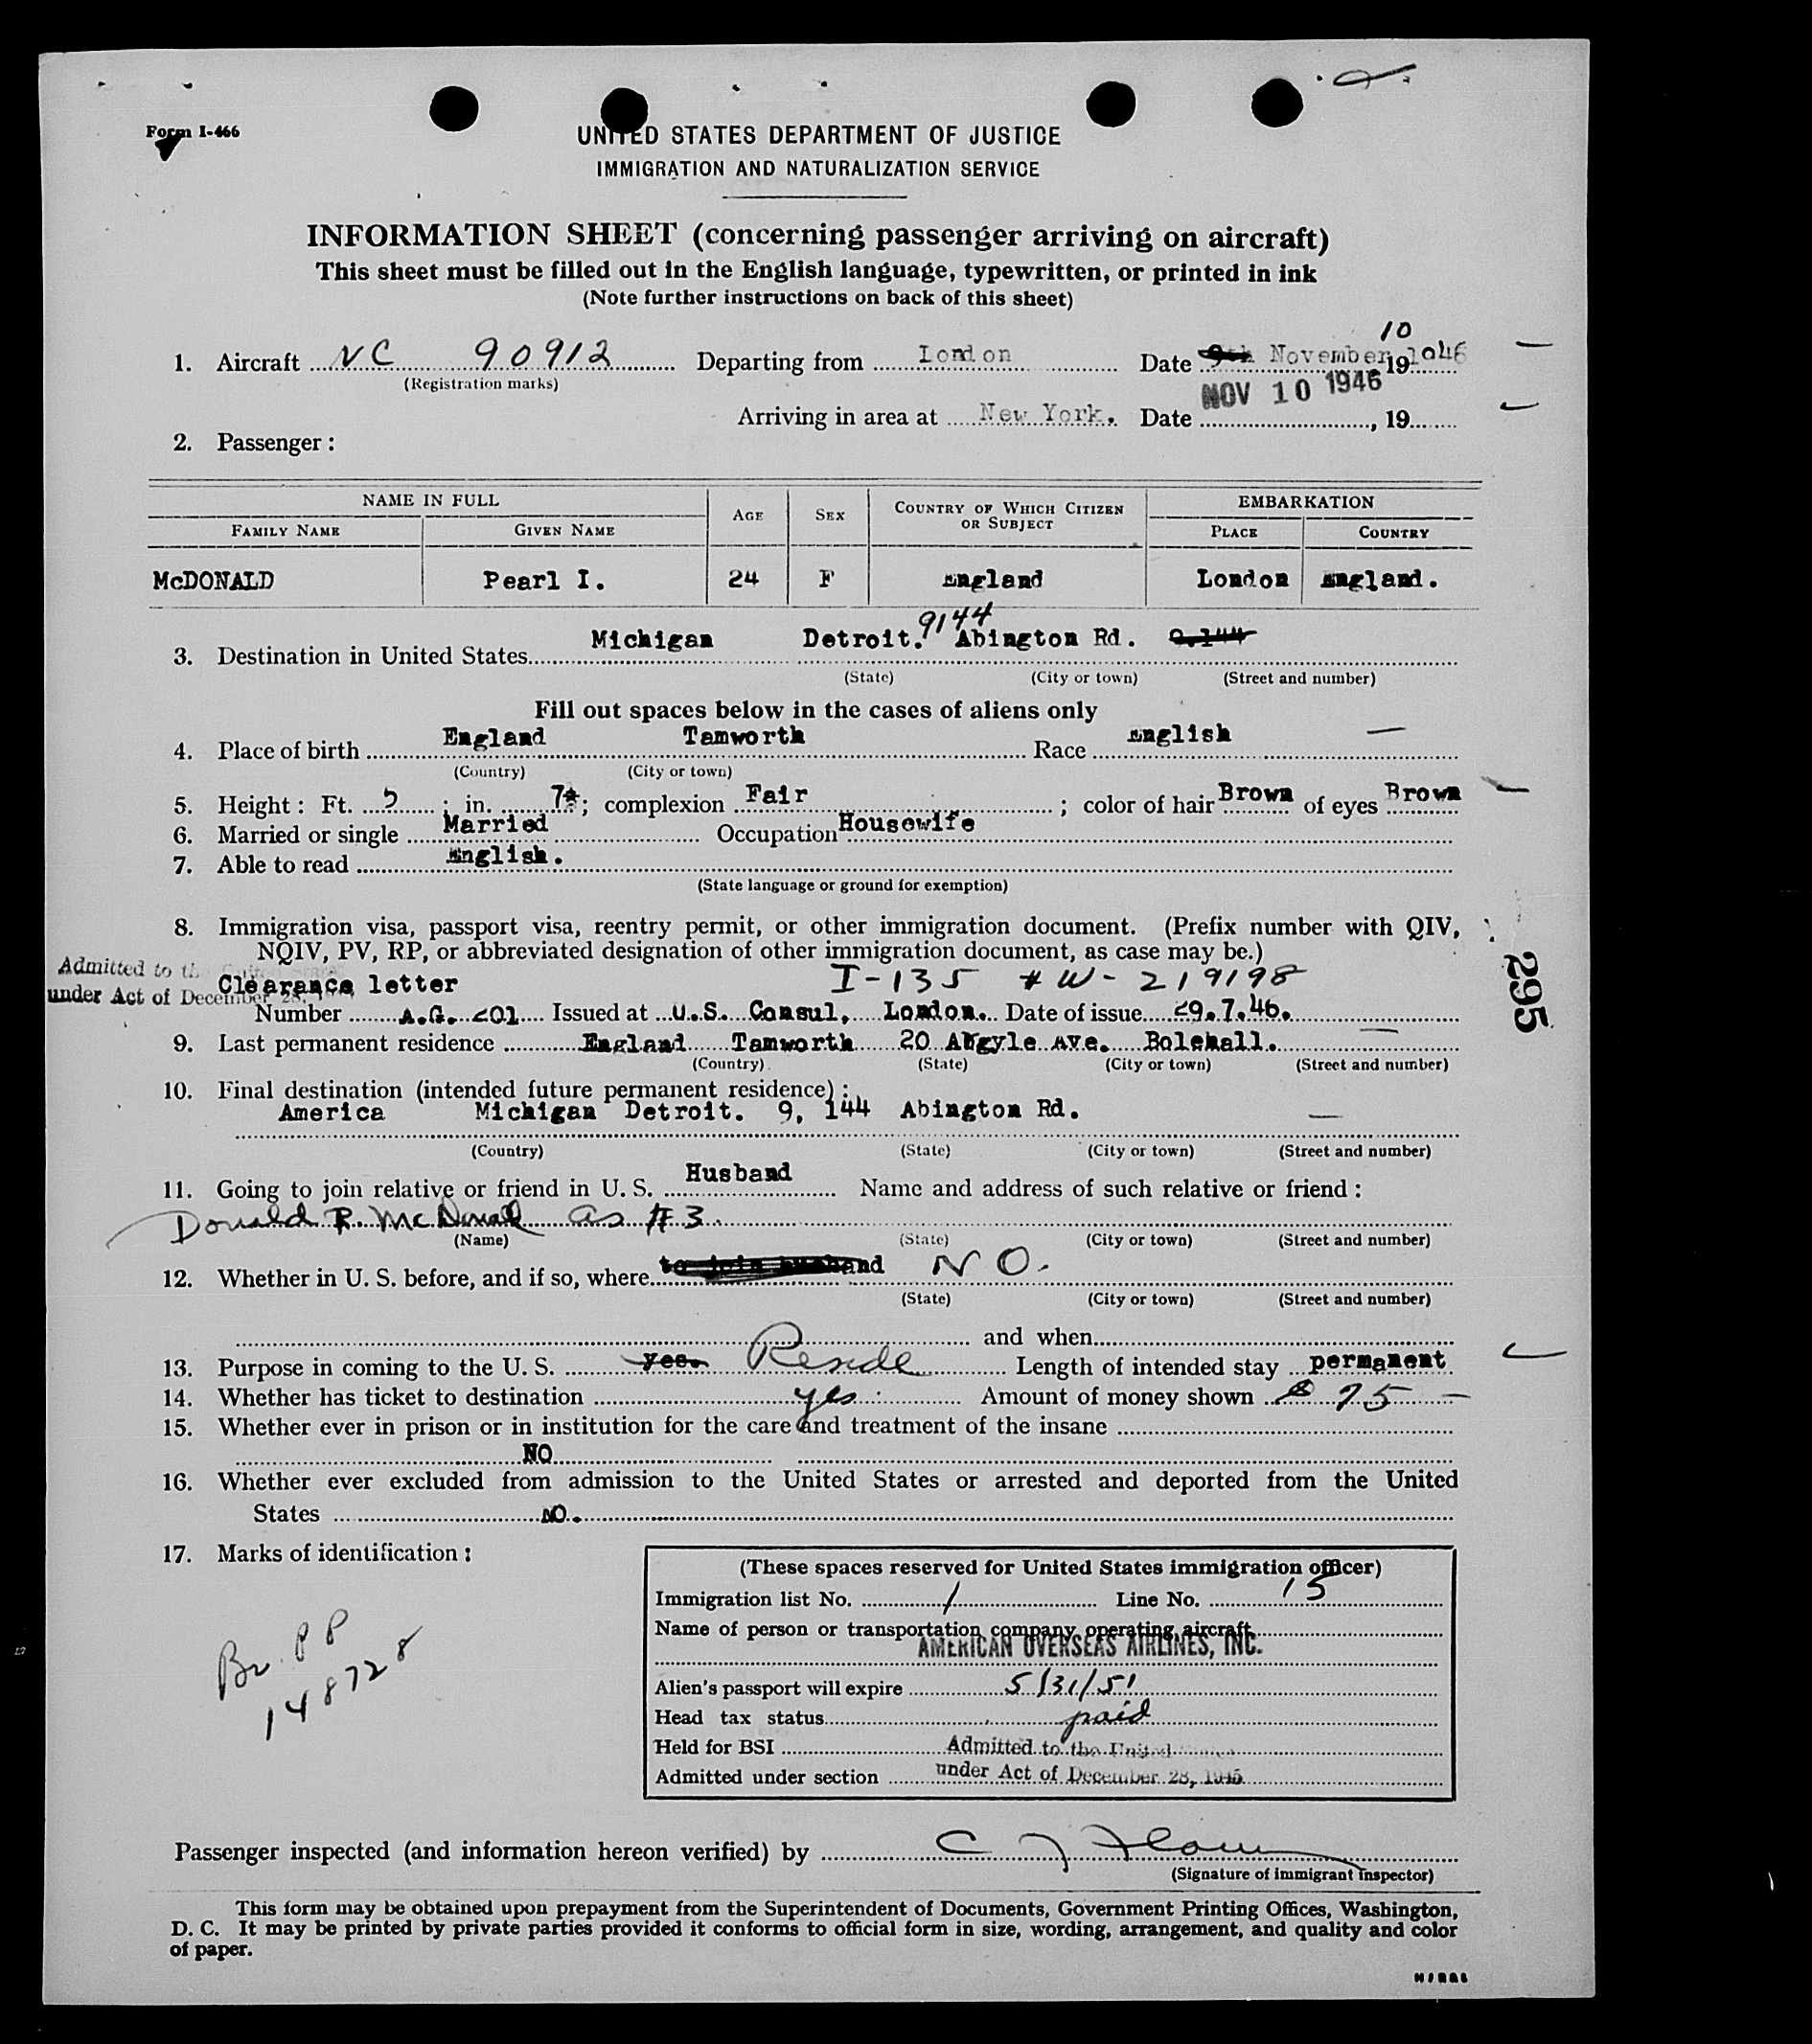 Form I-466
UNITED STATES DEPARTMENT OF JUSTICE
IMMIGRATION AND NATURALIZATION SERVICE
INFORMATION SHEET (concerning passenger arriving on aircraft)
This sheet must be filled out in the English language, typewritten, or printed in ink
(Note further instructions on back of this sheet)
10
1. Aircraft NC 90912 Departing from London Date 9th November 19 1946
(Registration marks)
NOV 10 1946
Arriving in area at New York. Date , 19
2. Passenger:
NAME IN FULL AGE SEX COUNTRY OF WHICH CITIZEN OR SUBJECT EMBARKATION
FAMILY NAME GIVEN NAME PLACE COUNTRY
McDONALD Pearl I. 24 F England London England.
9144
3. Destination in United States Michigan Detroit. Abington Rd. 9,144
(State) (City or town) (Street and number)
Fill out spaces below in the cases of aliens only
4. Place of birth England Tamworth Race English
(Country) (City or town)
5. Height: Ft. 5; in. 7; complexion Fair; color of hair Brown of eyes Brown
6. Married or single Married Occupation Housewife
7. Able to read English.
(State language or ground for exemption)
8. Immigration visa, passport visa, reentry permit, or other immigration document. (Prefix number with QIV,
NQIV, PV, RP, or abbreviated designation of other immigration document, as case may be.)
Admitted to the United States
under Act of December 28,
Clearance letter I-135 # W-219198
295
Number A.G. 201 Issued at U.S. Consul, London. Date of issue 29.7.46.
9. Last permanent residence England Tamworth 20 Argyle Ave. Bolehall.
(Country) (State) (City or town) (Street and number)
10. Final destination (intended future permanent residence):
America Michigan Detroit. 9, 144 Abington Rd.
(Country) (State) (City or town) (Street and number)
11. Going to join relative or friend in U. S. Husband Name and address of such relative or friend:
Donald R. McDonald as #3
(Name) (State) (City or town) (Street and number)
12. Whether in U. S. before, and if so, where to join husband NO.
(State) (City or town) (Street and number)
and when
13. Purpose in coming to the U. S. yes. Reside Length of intended stay permanent
14. Whether has ticket to destination yes Amount of money shown $ 75
15. Whether ever in prison or in institution for the care and treatment of the insane
NO
16. Whether ever excluded from admission to the United States or arrested and deported from the United
States NO.
17. Marks of identification:
Br. PP
148728
(These spaces reserved for United States immigration officer)
Immigration list No. 1 Line No. 15
Name of person or transportation company operating aircraft
AMERICAN OVERSEAS AIRLINES, INC.
Alien's passport will expire 5/31/51
Head tax status paid
Held for BSI Admitted to the United States
Admitted under section under Act of December 28, 1945
Passenger inspected (and information hereon verified) by
(Signature of immigrant inspector)
This form may be obtained upon prepayment from the Superintendent of Documents, Government Printing Offices, Washington,
D. C. It may be printed by private parties provided it conforms to official form in size, wording, arrangement, and quality and color
of paper.